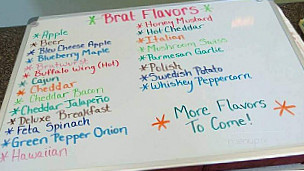 * Brat Flavors *
* Apple
* Beer
* Bleu Cheese Apple
* Blueberry Maple
* Bratwurst
* Buffalo Wing (Hot)
* Cajun
* Cheddar
* Cheddar Bacon
* Cheddar Jalapeño
* Deluxe Breakfast
* Feta Spinach
* Green Pepper Onion
* Hawaiian
* Honey Mustard
* Hot Cheddar
* Italian
* Mushroom Swiss
* Parmesan Garlic
* Polish
* Swedish Potato
* Whiskey Peppercorn
* More Flavors *
To Come!